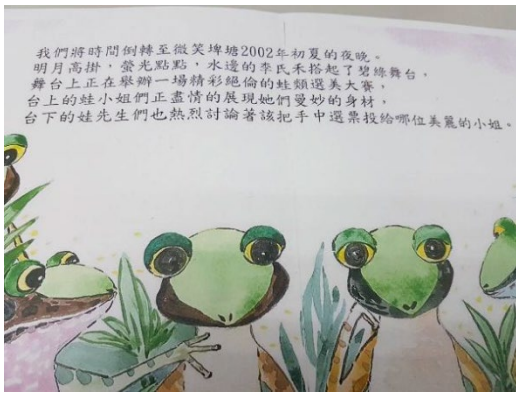 我們將時間倒轉至微笑埤塘2002年初夏的夜晚。
明月高掛，螢光點點，水邊的李氏禾搭起了碧綠舞台，
舞台上正在舉辦一場精彩絕倫的蛙類選美大賽，
台上的蛙小姐們正盡情的展現她們曼妙的身材，
台下的娃先生們也熱烈討論著該把手中選票投給哪位美麗的小姐。